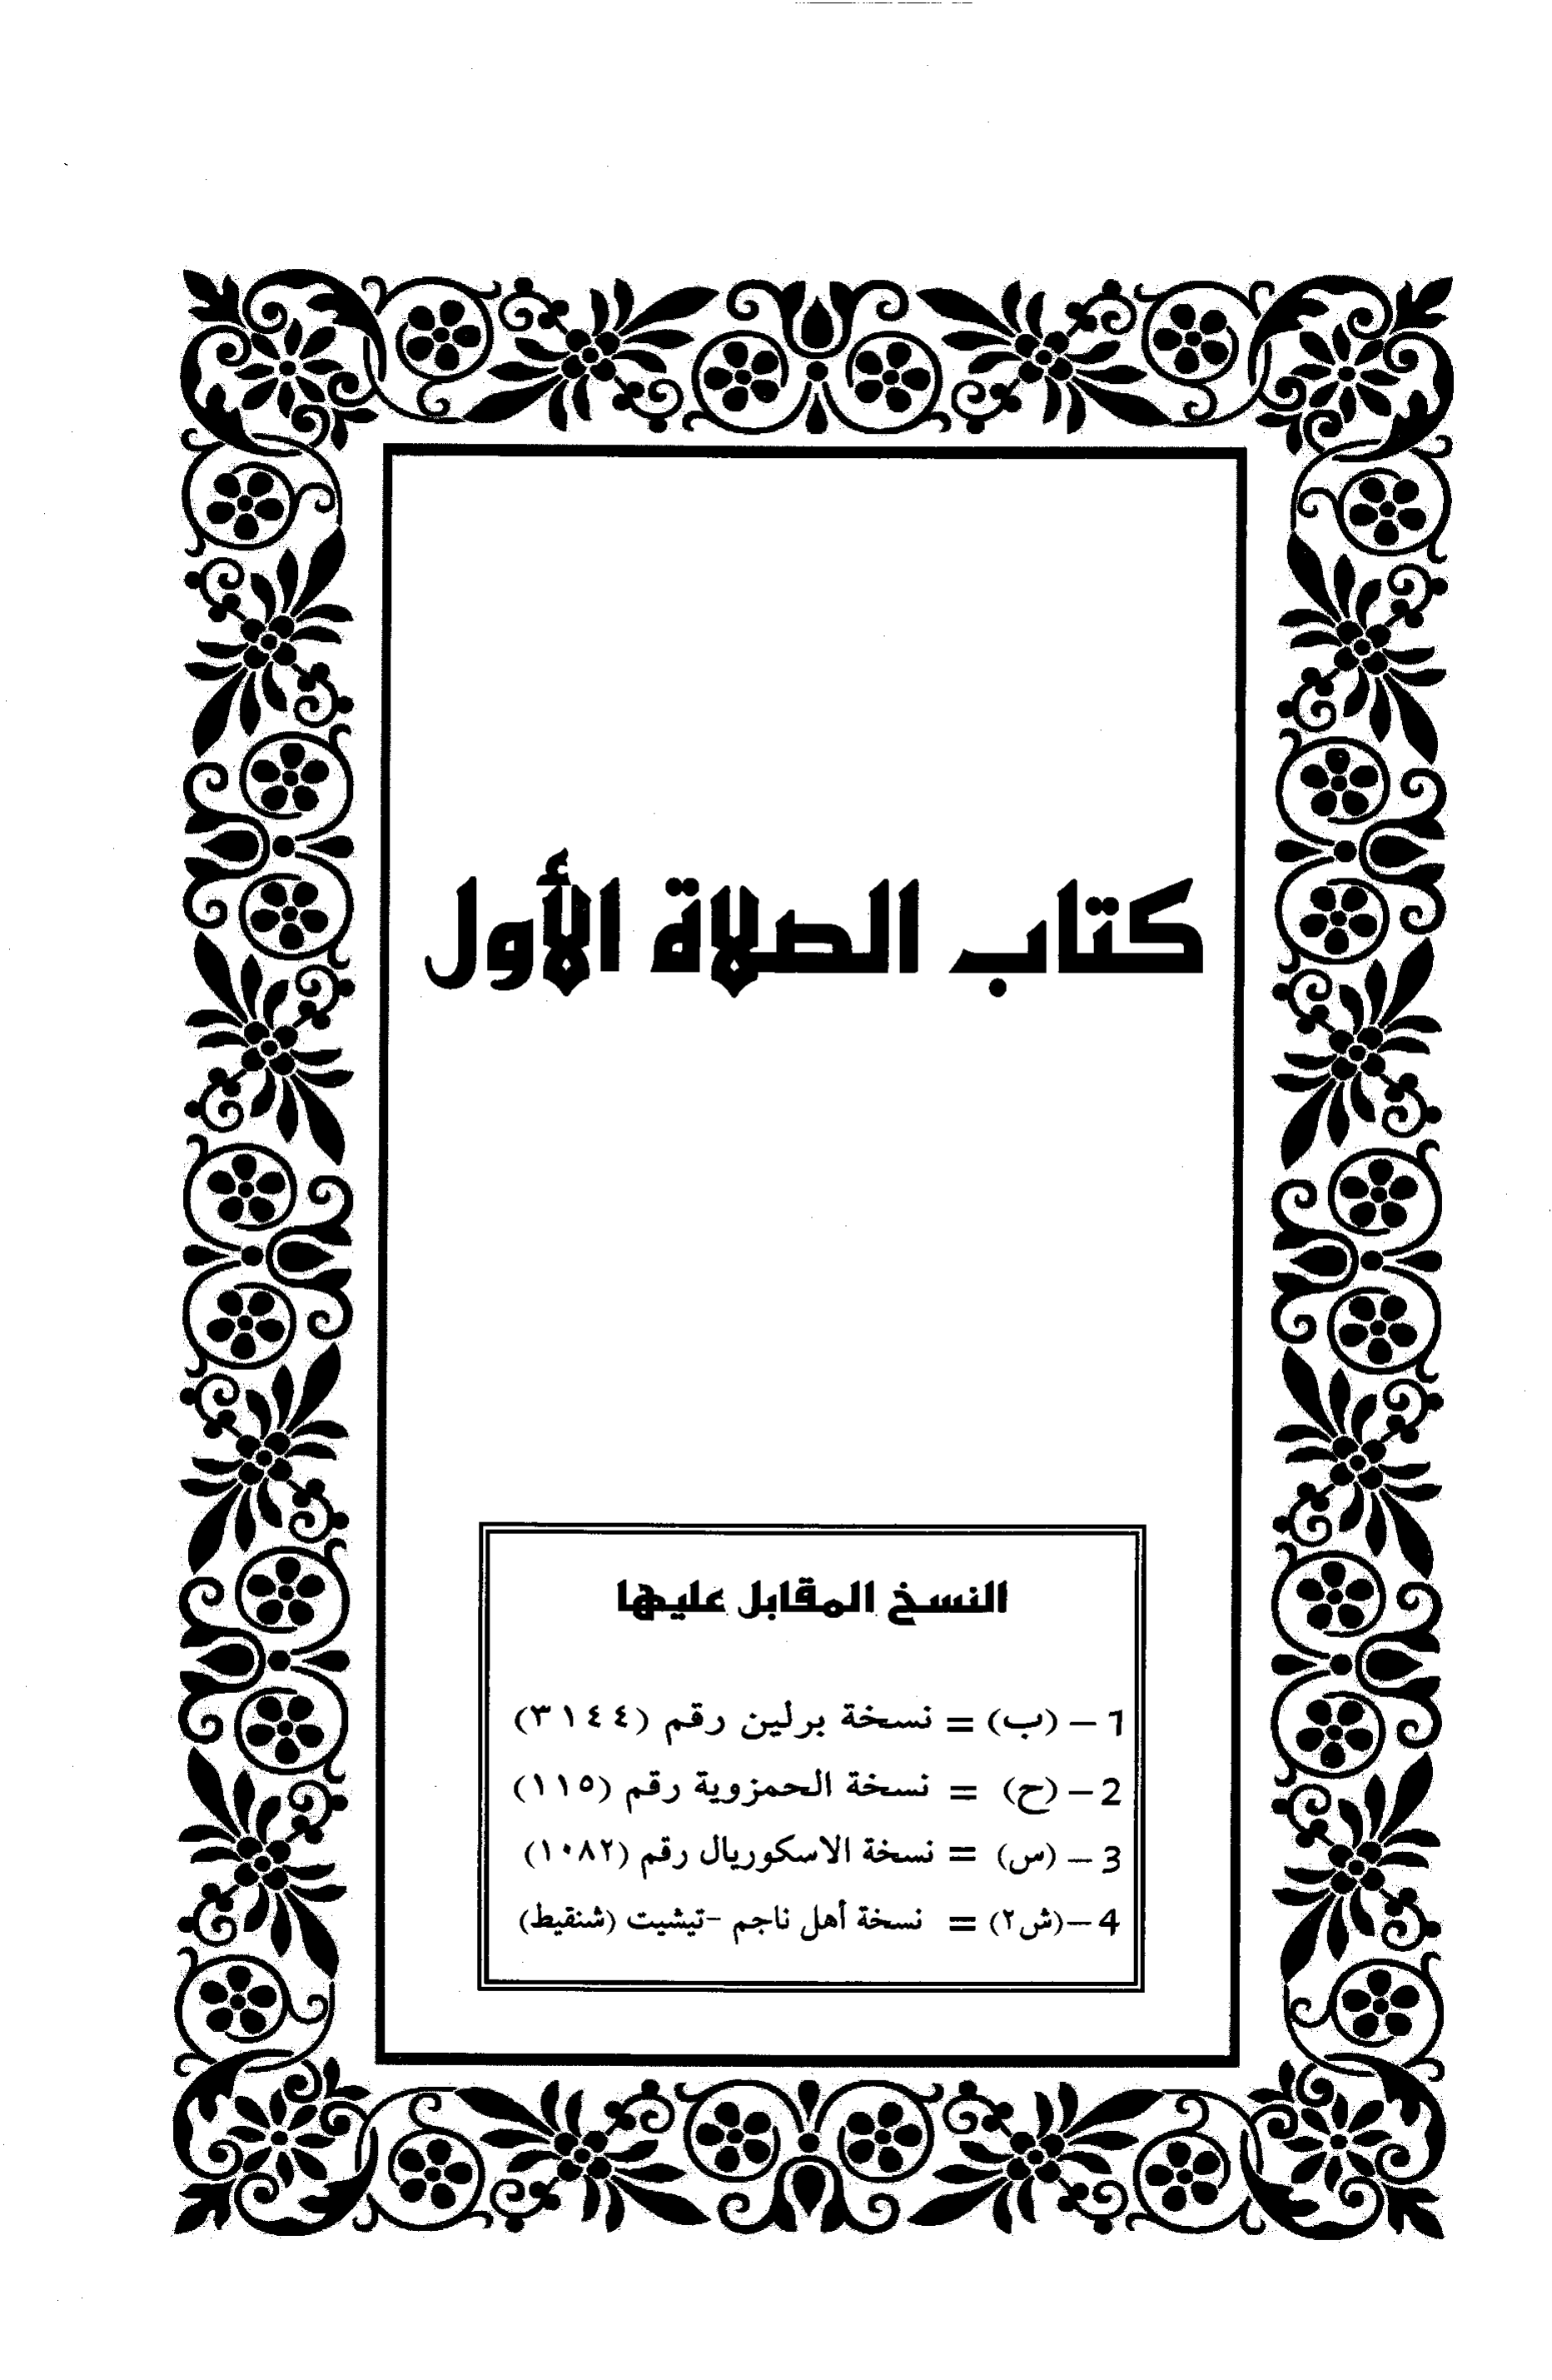 كتاب الصلاة الأول
النسخ المقابل عليها
1 – (ب) = نسخة برلين رقم (٣١٤٤)
2 – (ح) = نسخة الحمزوية رقم (١١٥)
3 – (س) = نسخة الاسكوريال رقم (١٠٨٢)
4 –(ش٢) = نسخة أهل ناجم -تيشيت (شنقيط)